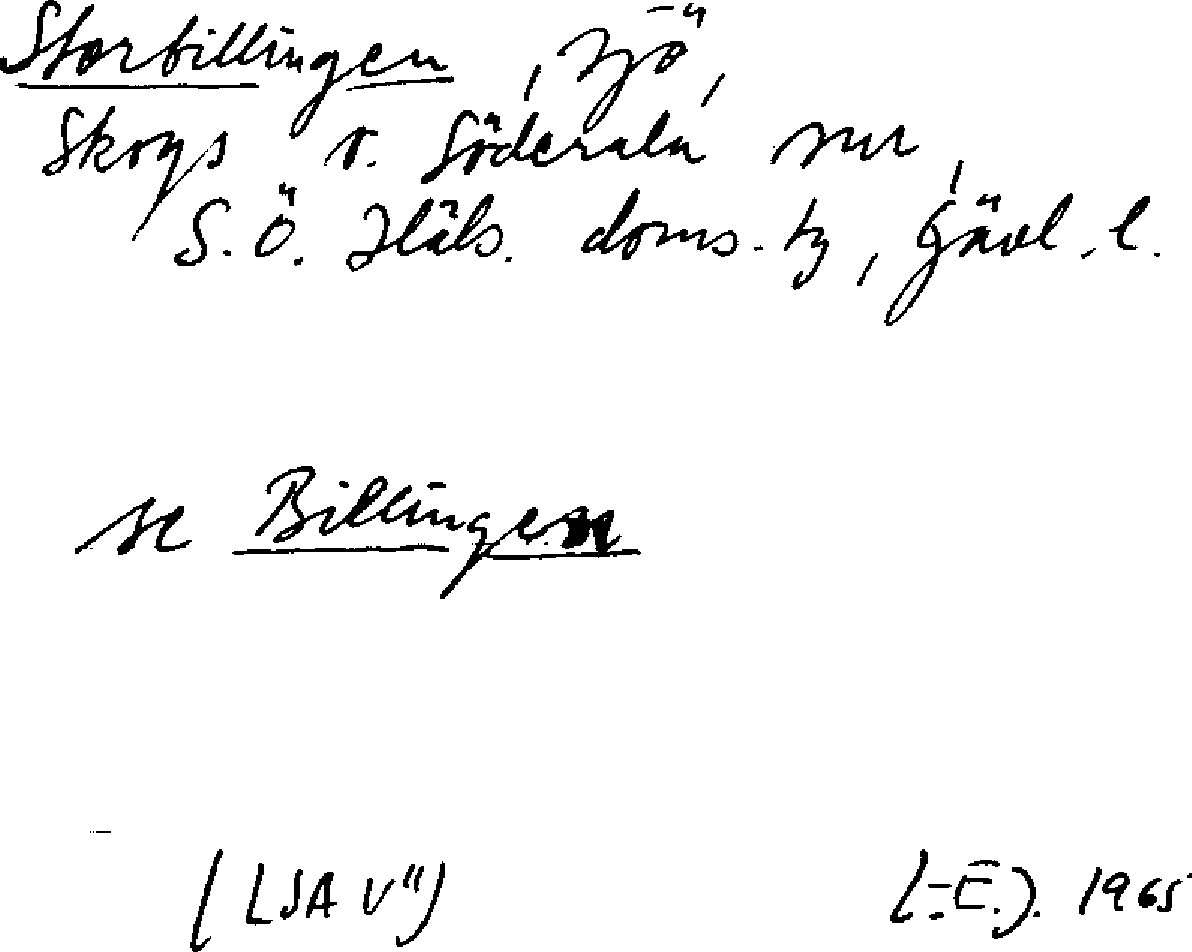 Storbillingen, sjö,
Skogs o. Söderala snr,
S.Ö. Häls. doms. tg, Gävl. l.
se Billingen
(LSA V")
(-:E.). 1965